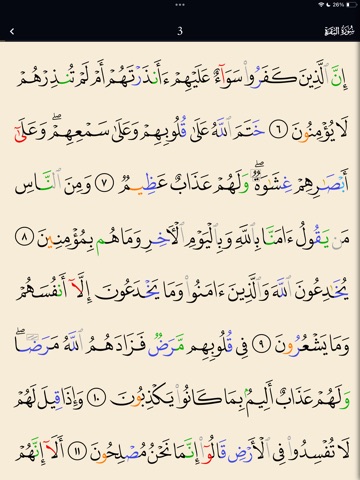 26%
3
سُورَةُ البَقَرَةِ
إِنَّ ٱلَّذِينَ كَفَرُوا۟ سَوَآءٌ عَلَيْهِمْ ءَأَنذَرْتَهُمْ أَمْ لَمْ تُنذِرْهُمْ
لَا يُؤْمِنُونَ ٦ خَتَمَ ٱللَّهُ عَلَىٰ قُلُوبِهِمْ وَعَلَىٰ سَمْعِهِمْۖ وَعَلَىٰٓ
أَبْصَٰرِهِمْ غِشَٰوَةٌۖ وَلَهُمْ عَذَابٌ عَظِيمٌ ٧ وَمِنَ ٱلنَّاسِ
مَن يَقُولُ ءَامَنَّا بِٱللَّهِ وَبِٱلْيَوْمِ ٱلْءَاخِرِ وَمَا هُم بِمُؤْمِنِينَ ٨
يُخَٰدِعُونَ ٱللَّهَ وَٱلَّذِينَ ءَامَنُوا۟ وَمَا يَخْدَعُونَ إِلَّآ أَنفُسَهُمْ
وَمَا يَشْعُرُونَ ٩ فِى قُلُوبِهِم مَّرَضٌ فَزَادَهُمُ ٱللَّهُ مَرَضًاۖ
وَلَهُمْ عَذَابٌ أَلِيمٌۢ بِمَا كَانُوا۟ يَكْذِبُونَ ١٠ وَإِذَا قِيلَ لَهُمْ
لَا تُفْسِدُوا۟ فِى ٱلْأَرْضِ قَالُوٓا۟ إِنَّمَا نَحْنُ مُصْلِحُونَ ١١ أَلَآ إِنَّهُمْ